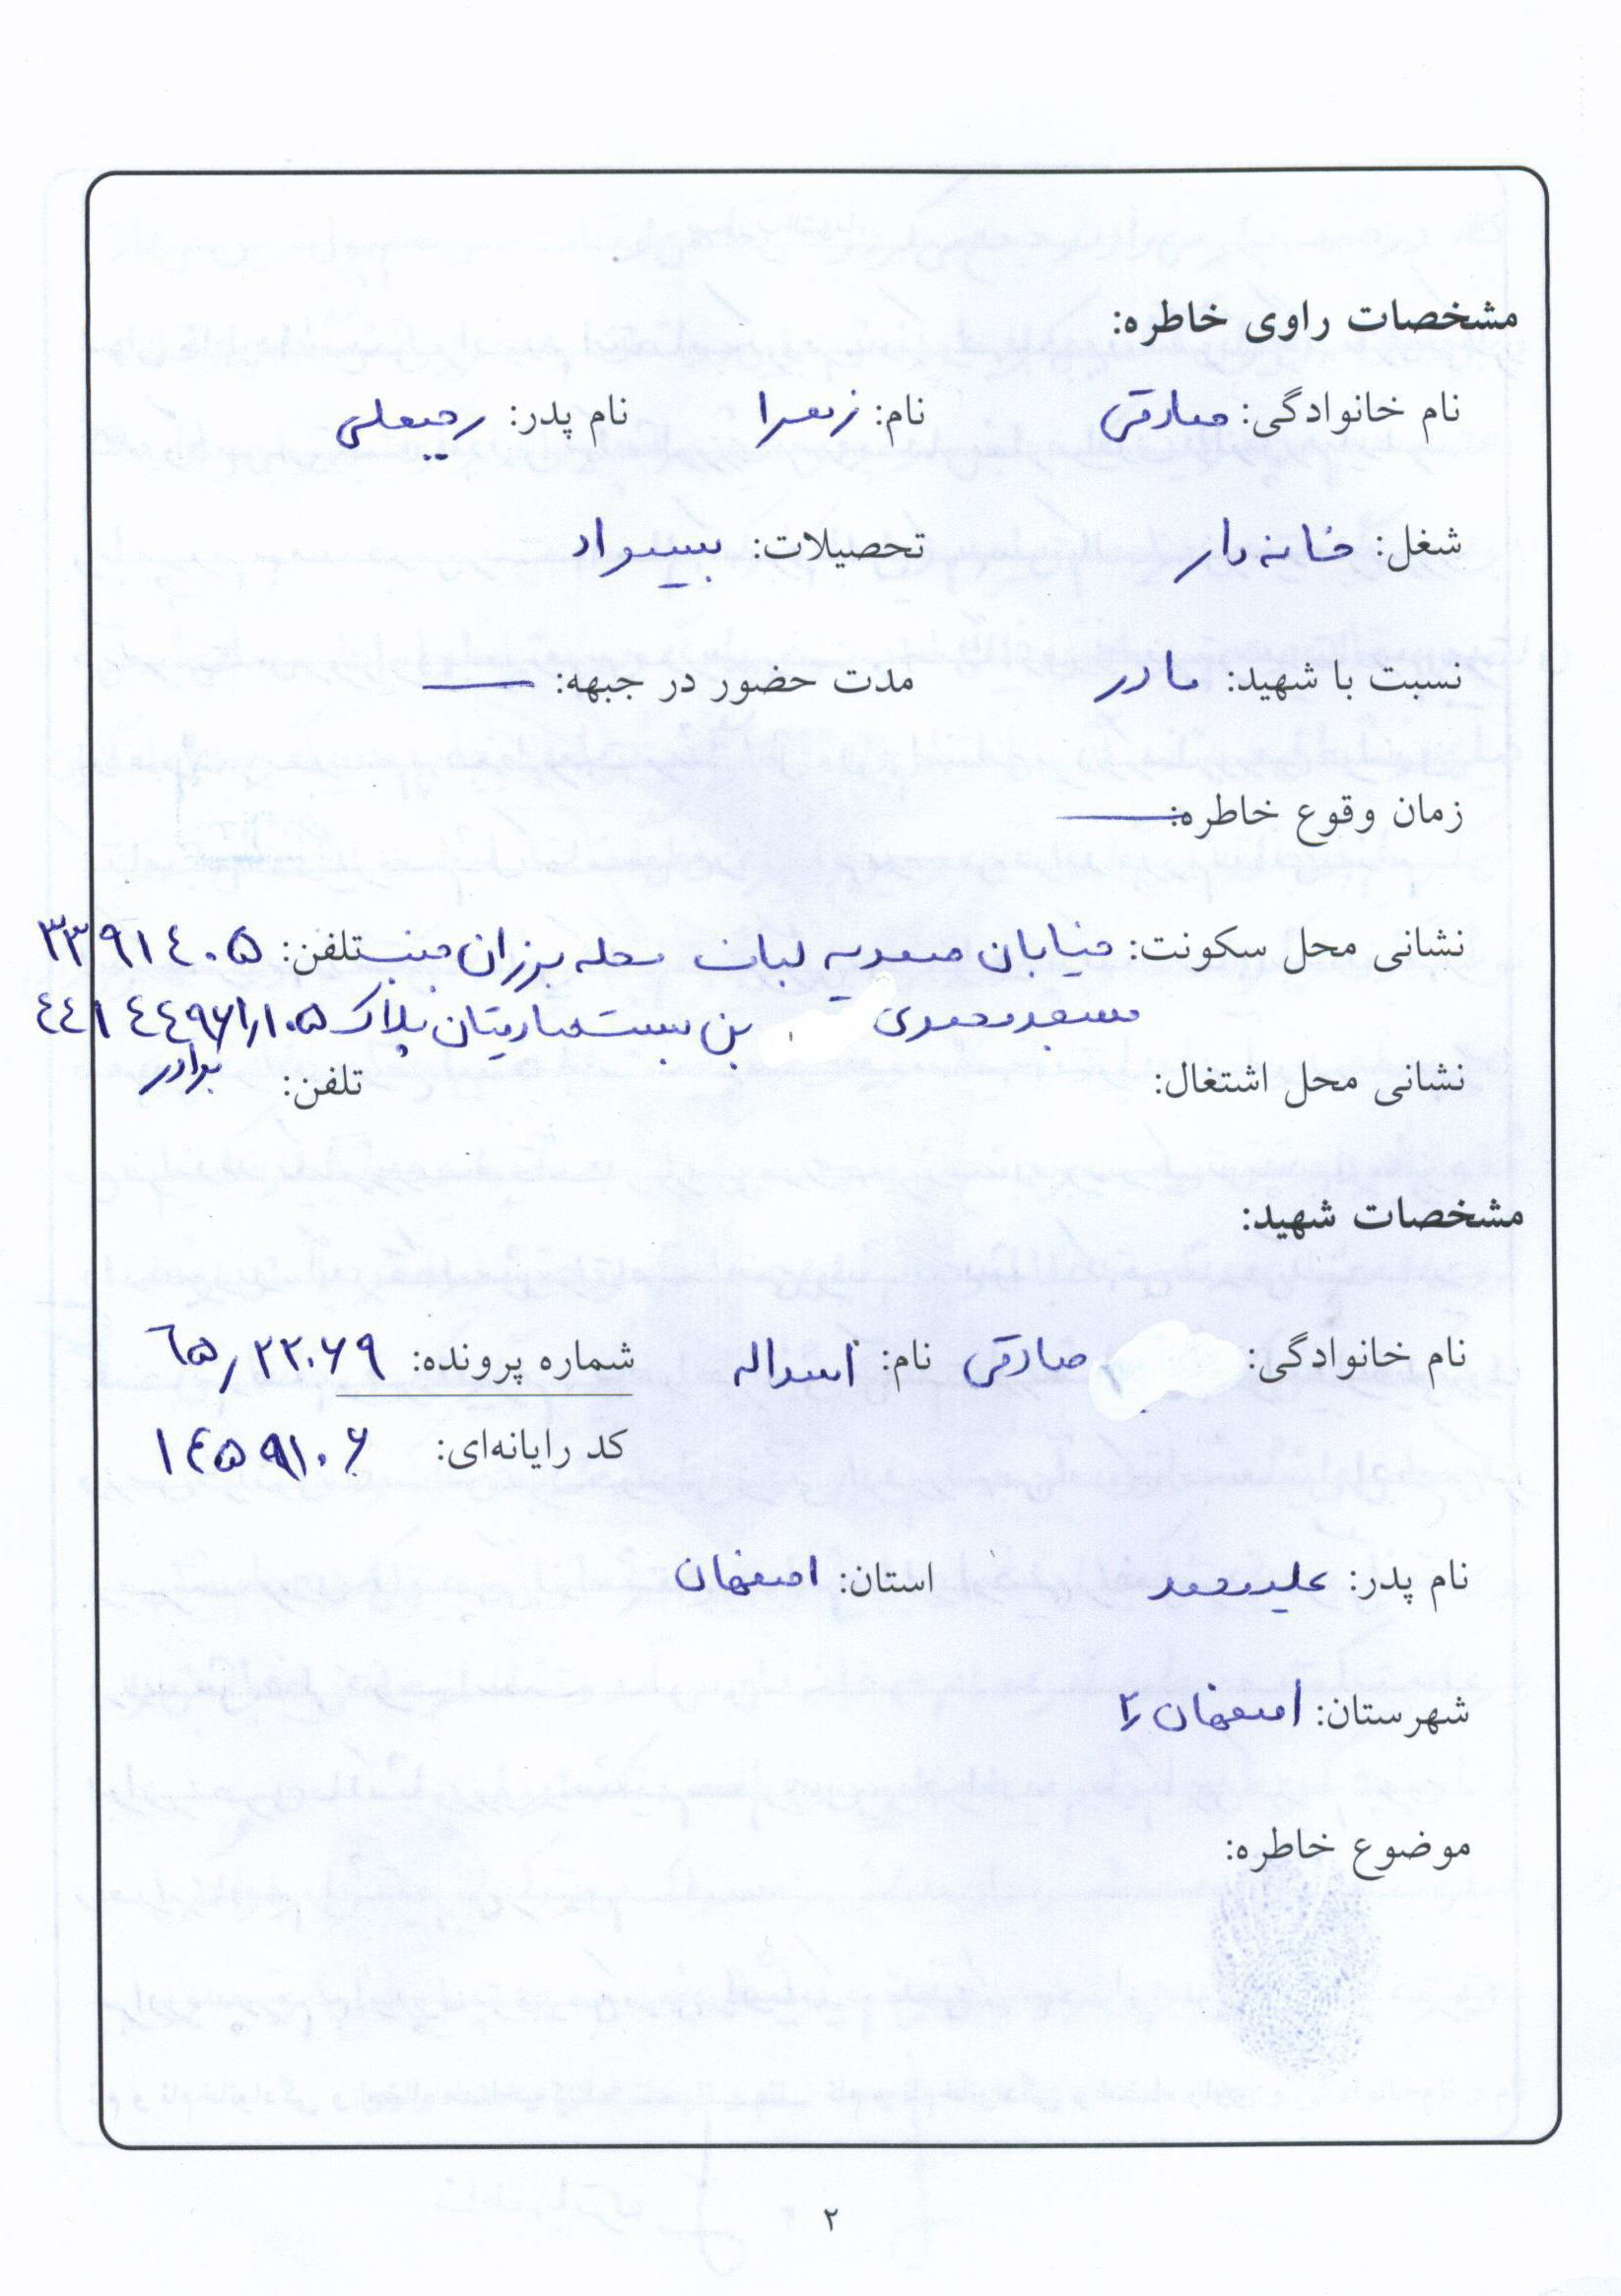 مشخصات راوی خاطره:
نام خانوادگی: صادقی نام: زهرا نام پدر: رجبعلی
شغل: خانه دار تحصیلات: بیسواد
نسبت با شهید: مادر مدت حضور در جبهه: ــــ
زمان وقوع خاطره: ــــ
نشانی محل سکونت: خیابان صمدیه لباف محله برزان جنب تلفن: ۳۳۹۱۴۰۵
مسجد محمدی بن بست صادقیان پلاک ۱۰۵
نشانی محل اشتغال: تلفن: برادر
مشخصات شهید:
نام خانوادگی: صادقی نام: اسداله شماره پرونده: ۶۵/۲۲۰۶۹
کد رایانه‌ای: ۱۴۵۹۱۰۶
نام پدر: علیمحمد استان: اصفهان
شهرستان: اصفهان ۲
موضوع خاطره:
۲